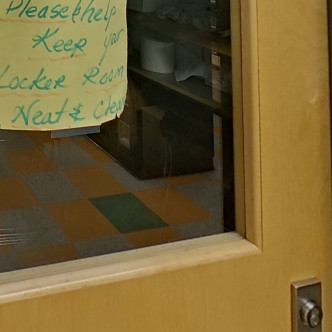 Please help
Keep your
Locker Room
Neat & Clean